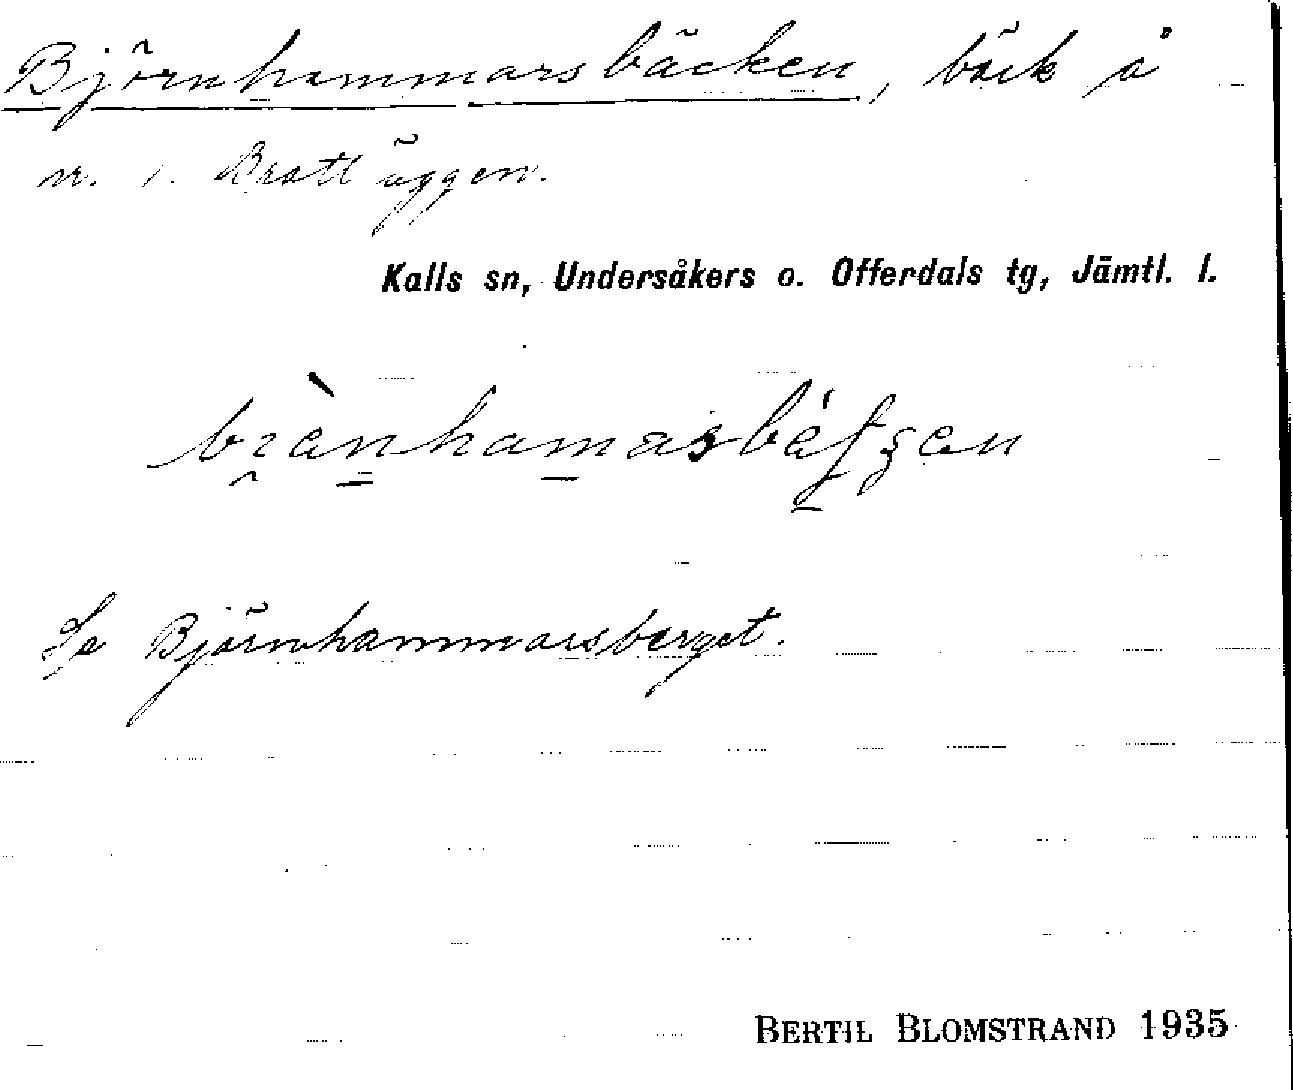 Björnhammarsbäcken, bäck å
nr. 1. Brattäggen.
Kalls sn, Undersåkers o. Offerdals tg, Jämtl. l.
Se Björnhammarsberget.
BERTIL BLOMSTRAND 1935